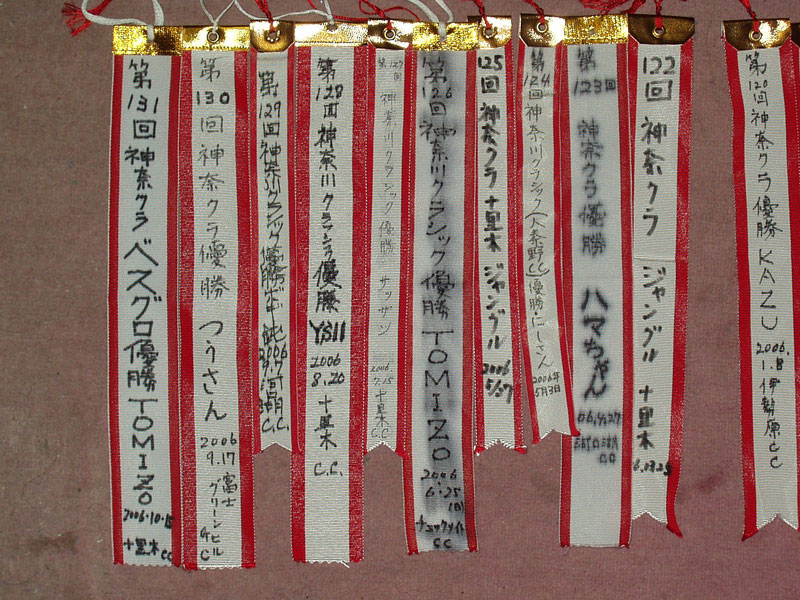 第131回神奈クラ ベスグロ優勝 TOMIZO 2006・10・15 十里木CC
第130回神奈クラ優勝 つうさん 2006 9.17 富士グリーンヒルGC
第129回神奈川クラシック優勝
第128回神奈川クラシック優勝 YS11 2006 8.20 十里木C.C.
第127回 神奈川クラシック 優勝 サッサン 2006. 7.15 十里木CC
第126回神奈川クラシック優勝 TOMIZO 2006・6・25(日)
125回神奈クラ十里木 ジャングル 2006 5/07
第124回神奈川クラシック(大秦野CC)優勝・にしさん 2006年5月3日
第123回 神奈クラ優勝 ハマちゃん
122回 神奈クラ ジャングル 十里木
第120回神奈クラ優勝 KAZU 2006. 1.8 伊勢原CC